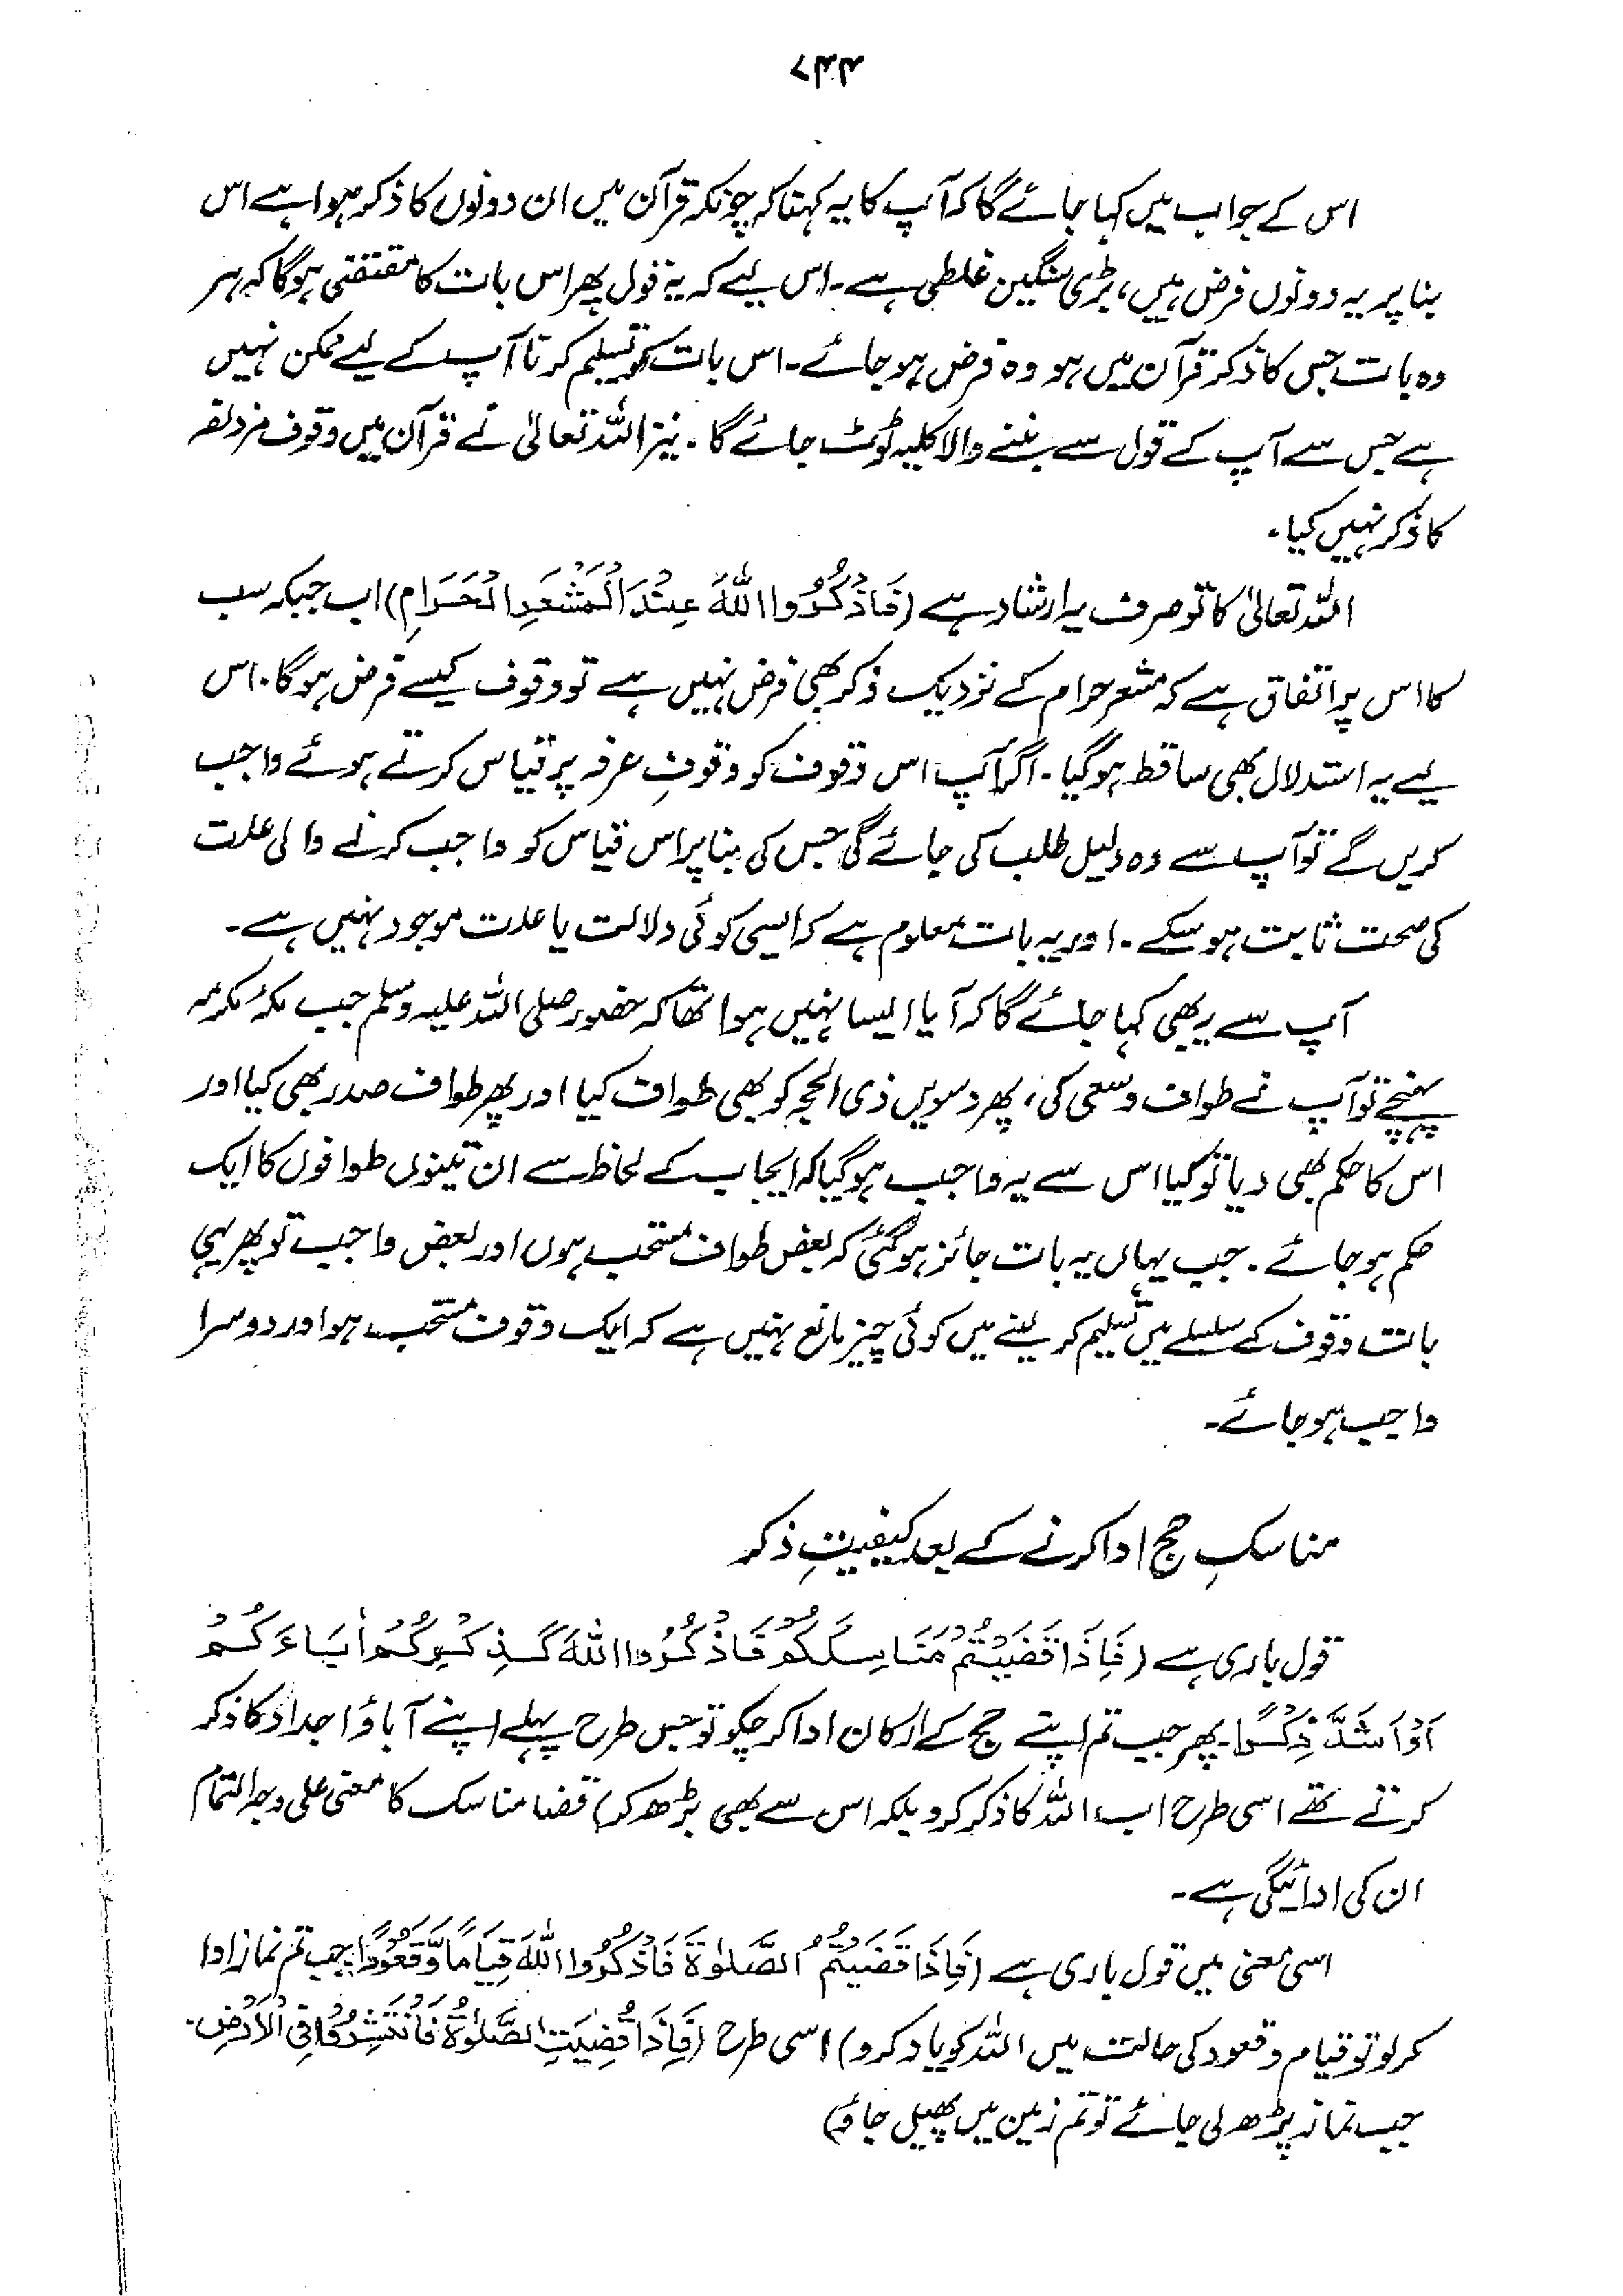 ۷۴۷
اس کے جواب میں کہا جائے گا کہ آپ کا یہ کہنا کہ چونکہ قرآن میں ان دونوں کا ذکر ہوا ہے اس
بنا پر یہ دونوں فرض ہیں، بڑی سنگین غلطی ہے۔ اس لیے کہ یہ قول پھر اس بات کا مقتضی ہوگا کہ ہر
وہ بات جس کا ذکر قرآن میں ہو وہ فرض ہو جائے۔ اس بات کو تسلیم کرنا آپ کے لیے ممکن نہیں
ہے جس سے آپ کے قول سے بننے والا کلیہ ٹوٹ جائے گا۔ نیز اللہ تعالیٰ نے قرآن میں وقوف مزدلفہ
کا ذکر نہیں کیا۔
اللہ تعالیٰ کا تو صرف یہ ارشاد ہے (فَاذْكُرُوا اللّٰهَ عِنْدَ الْمَشْعَرِ الْحَرَامِ) اب جبکہ سب
کا اس پر اتفاق ہے کہ مشعر حرام کے نزدیک ذکر بھی فرض نہیں ہے تو وقوف کیسے فرض ہوگا۔ اس
لیے یہ استدلال بھی ساقط ہوگیا۔ اگر آپ اس وقوف کو وقوفِ عرفہ پر قیاس کرتے ہوئے واجب
کریں گے تو آپ سے وہ دلیل طلب کی جائے گی جس کی بنا پر اس قیاس کو واجب کرنے والی علت
کی صحت ثابت ہوسکے۔ اور یہ بات معلوم ہے کہ ایسی کوئی دلالت یا علت موجود نہیں ہے۔
آپ سے یہ بھی کہا جائے گا کہ آیا ایسا نہیں ہوا تھا کہ حضور صلی اللہ علیہ وسلم جب مکہ مکرمہ
پہنچے تو آپ نے طواف وسعی کی، پھر دسویں ذی الحجہ کو بھی طواف کیا اور پھر طواف صدر بھی کیا اور
اس کا حکم بھی دیا تو کیا اس سے یہ واجب ہوگیا کہ ایجاب کے لحاظ سے ان تینوں طوافوں کا ایک
حکم ہو جائے۔ جب یہاں یہ بات جائز ہوگئی کہ بعض طواف مستحب ہوں اور بعض واجب تو پھر یہی
بات وقوف کے سلسلے میں تسلیم کر لینے میں کوئی چیز مانع نہیں ہے کہ ایک وقوف مستحب ہو اور دوسرا
واجب ہو جائے۔
مناسکِ حج ادا کرنے کے بعد کیفیتِ ذکر
قول باری ہے (فَاِذَا قَضَيْتُمْ مَنَاسِكَكُمْ فَاذْكُرُوا اللّٰهَ كَذِكْرِكُمْ اٰبَاءَكُمْ
اَوْ اَشَدَّ ذِكْرًا۔ پھر جب تم اپنے حج کے ارکان ادا کر چکو تو جس طرح پہلے اپنے آباؤ اجداد کا ذکر
کرتے تھے اسی طرح اب اللہ کا ذکر کرو بلکہ اس سے بھی بڑھ کر) قضا مناسک کا معنی علی وجہ التمام
ان کی ادائیگی ہے۔
اسی معنی میں قول باری ہے (فَاِذَا قَضَيْتُمُ الصَّلٰوةَ فَاذْكُرُوا اللّٰهَ قِيَامًا وَّقُعُوْدًا جب تم نماز ادا
کر لو تو قیام وقعود کی حالت میں اللہ کو یاد کرو) اسی طرح (فَاِذَا قُضِيَتِ الصَّلٰوةُ فَانْتَشِرُوْا فِي الْاَرْضِ۔
جب نماز پڑھ لی جائے تو تم زمین میں پھیل جاؤ)